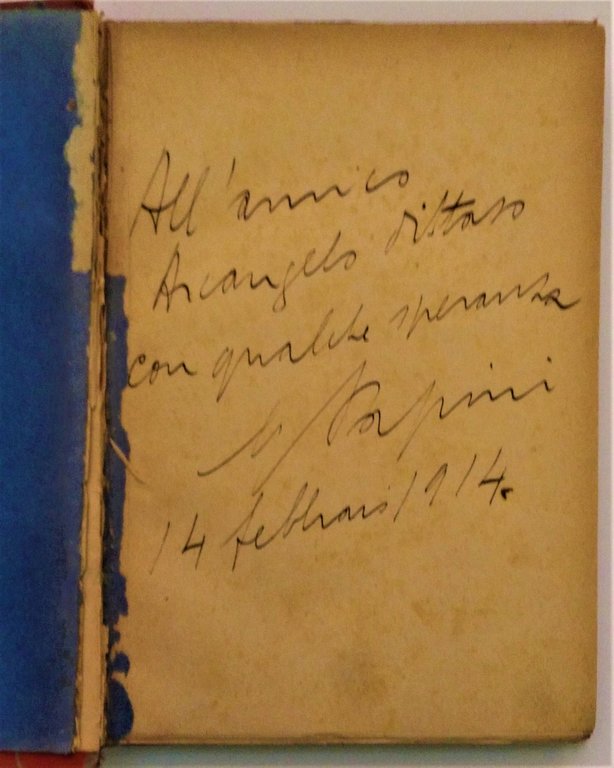 All'amico
Arcangelo Distaso
con qualche speranza
G Papini
14 febbraio 1914.